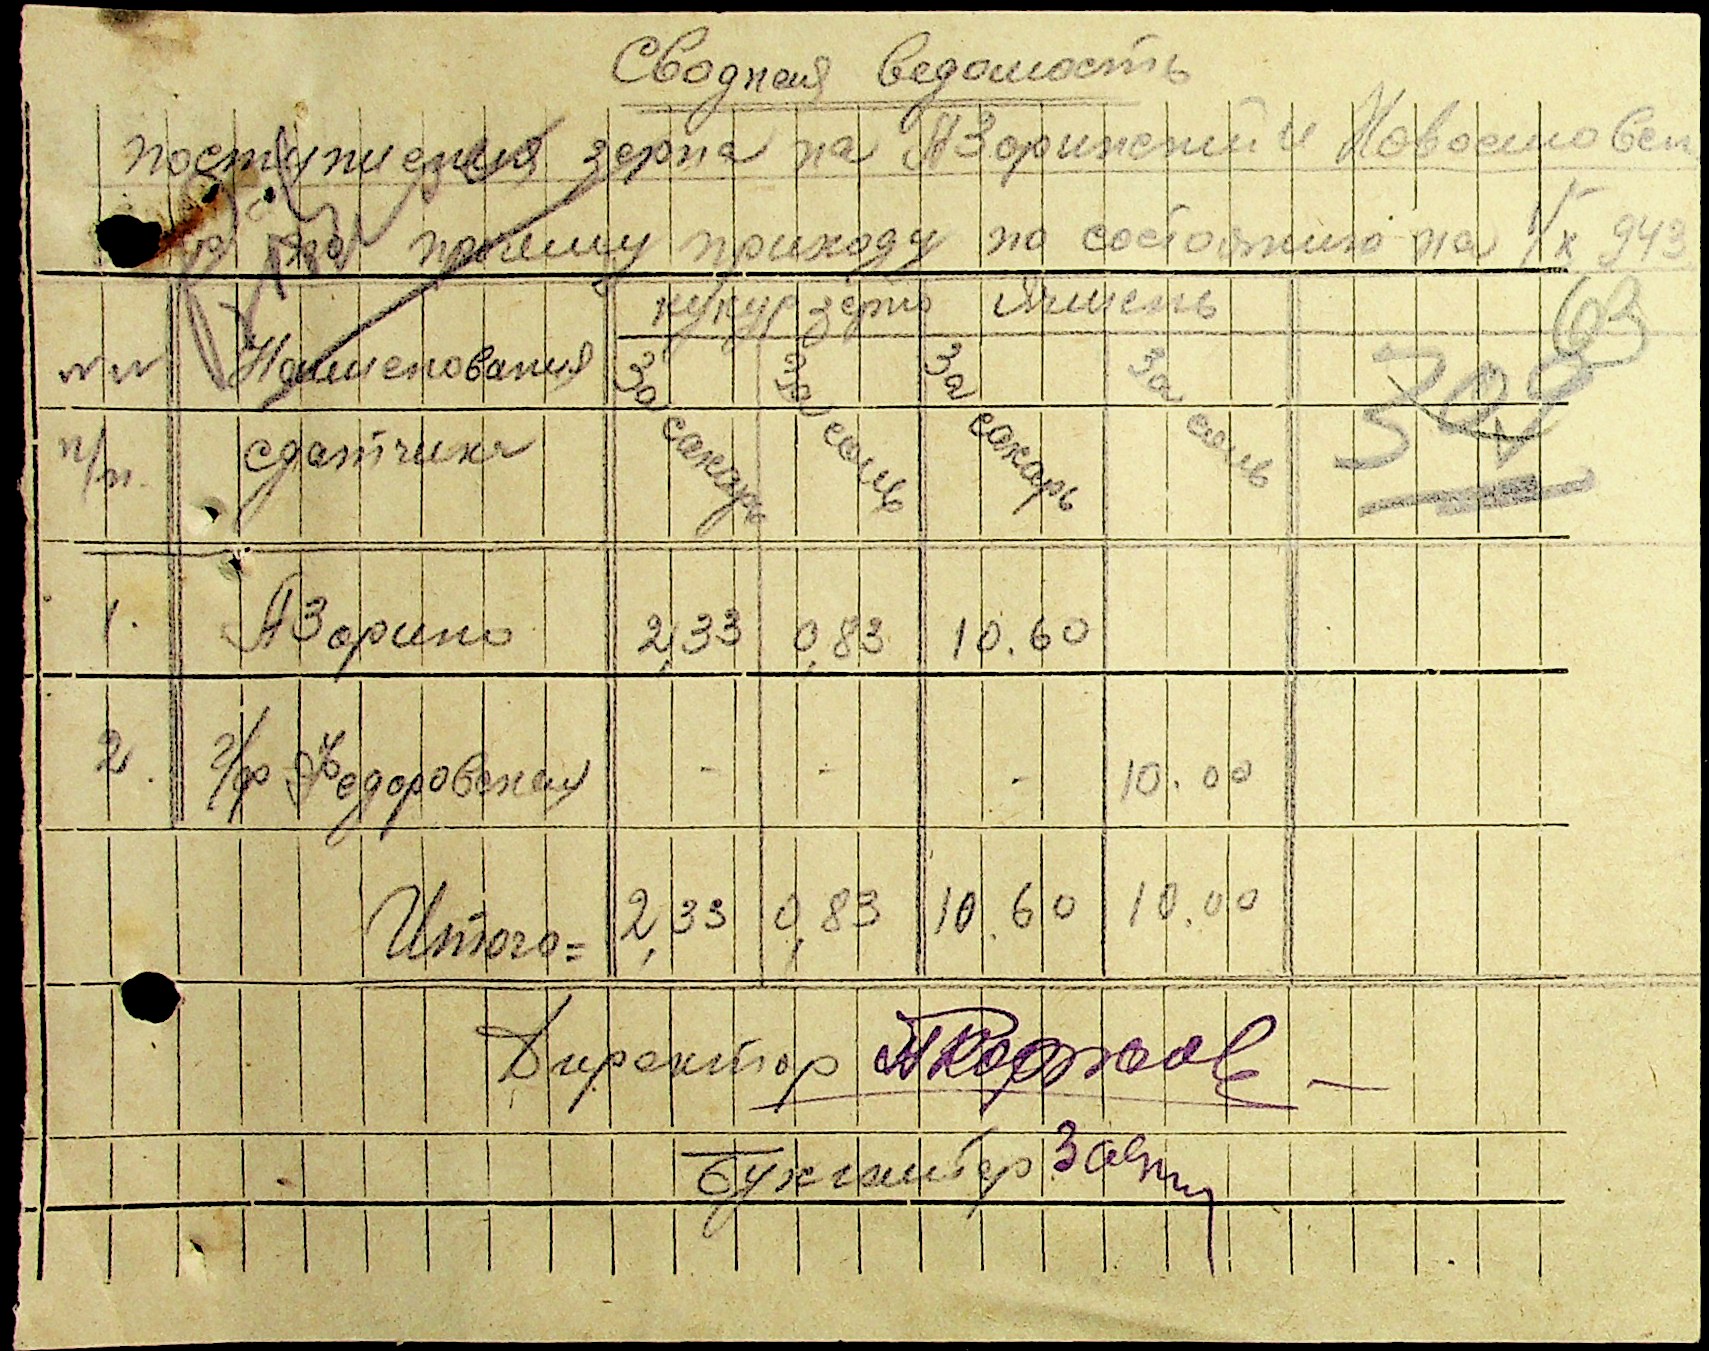 Сводная ведомость
поступления зерна на Азаринский и Новоселовск.
по прямому приходу по состоянию на 1/X 943
кукур зерно Ячмень
63
№№ Наименования За сахар За соль За сахар За соль
п/п. сдатчика
1. Азарино 2,33 0,83 10.60
2. г/ф Федоровская - - - 10.00
Итого = 2,33 0,83 10.60 10.00
Директор
Бухгалтер